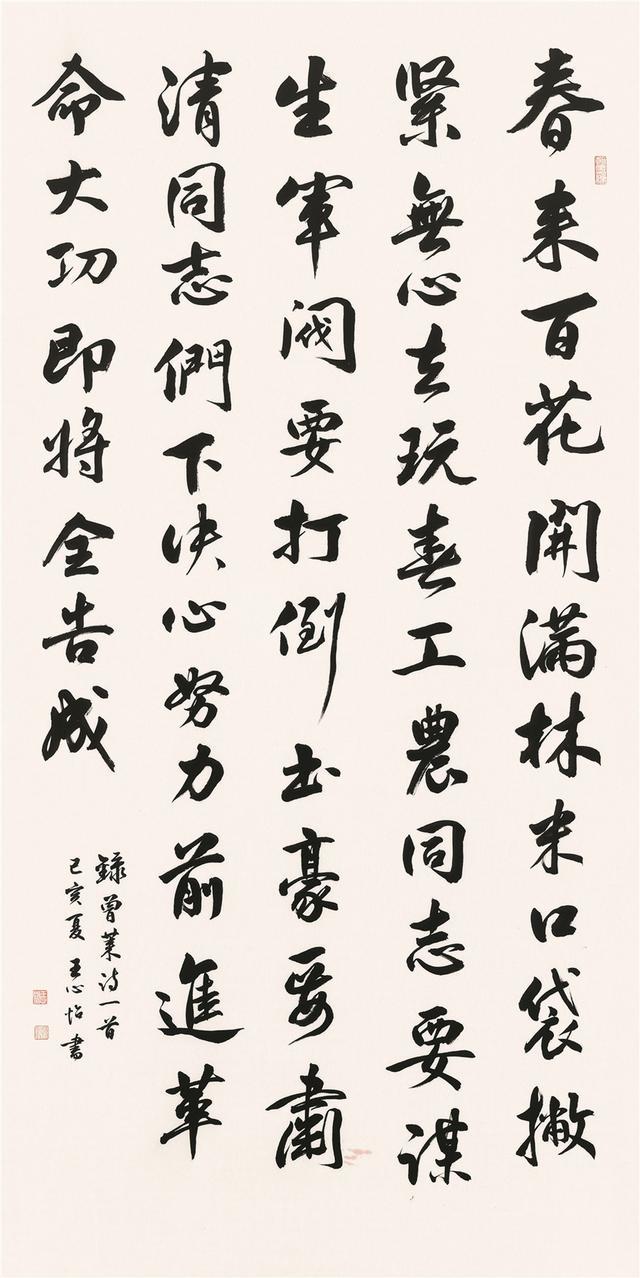 春来百花開滿林米口袋撇
緊無心去玩春工農同志要謀
生軍閥要打倒土豪要肅
清同志們下决心努力前進革
命大功即將全告成
録曾萊诗一首
己亥夏王心怡書